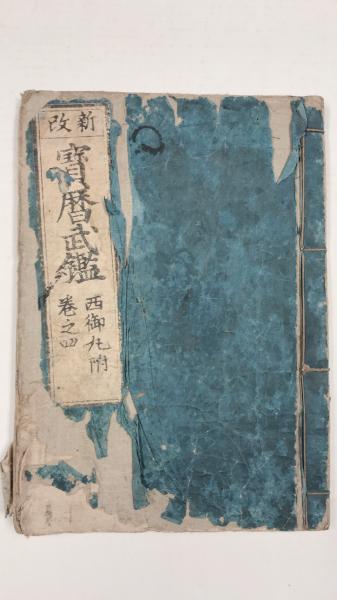 新改
寶暦武鑑
西御丸附
卷之四